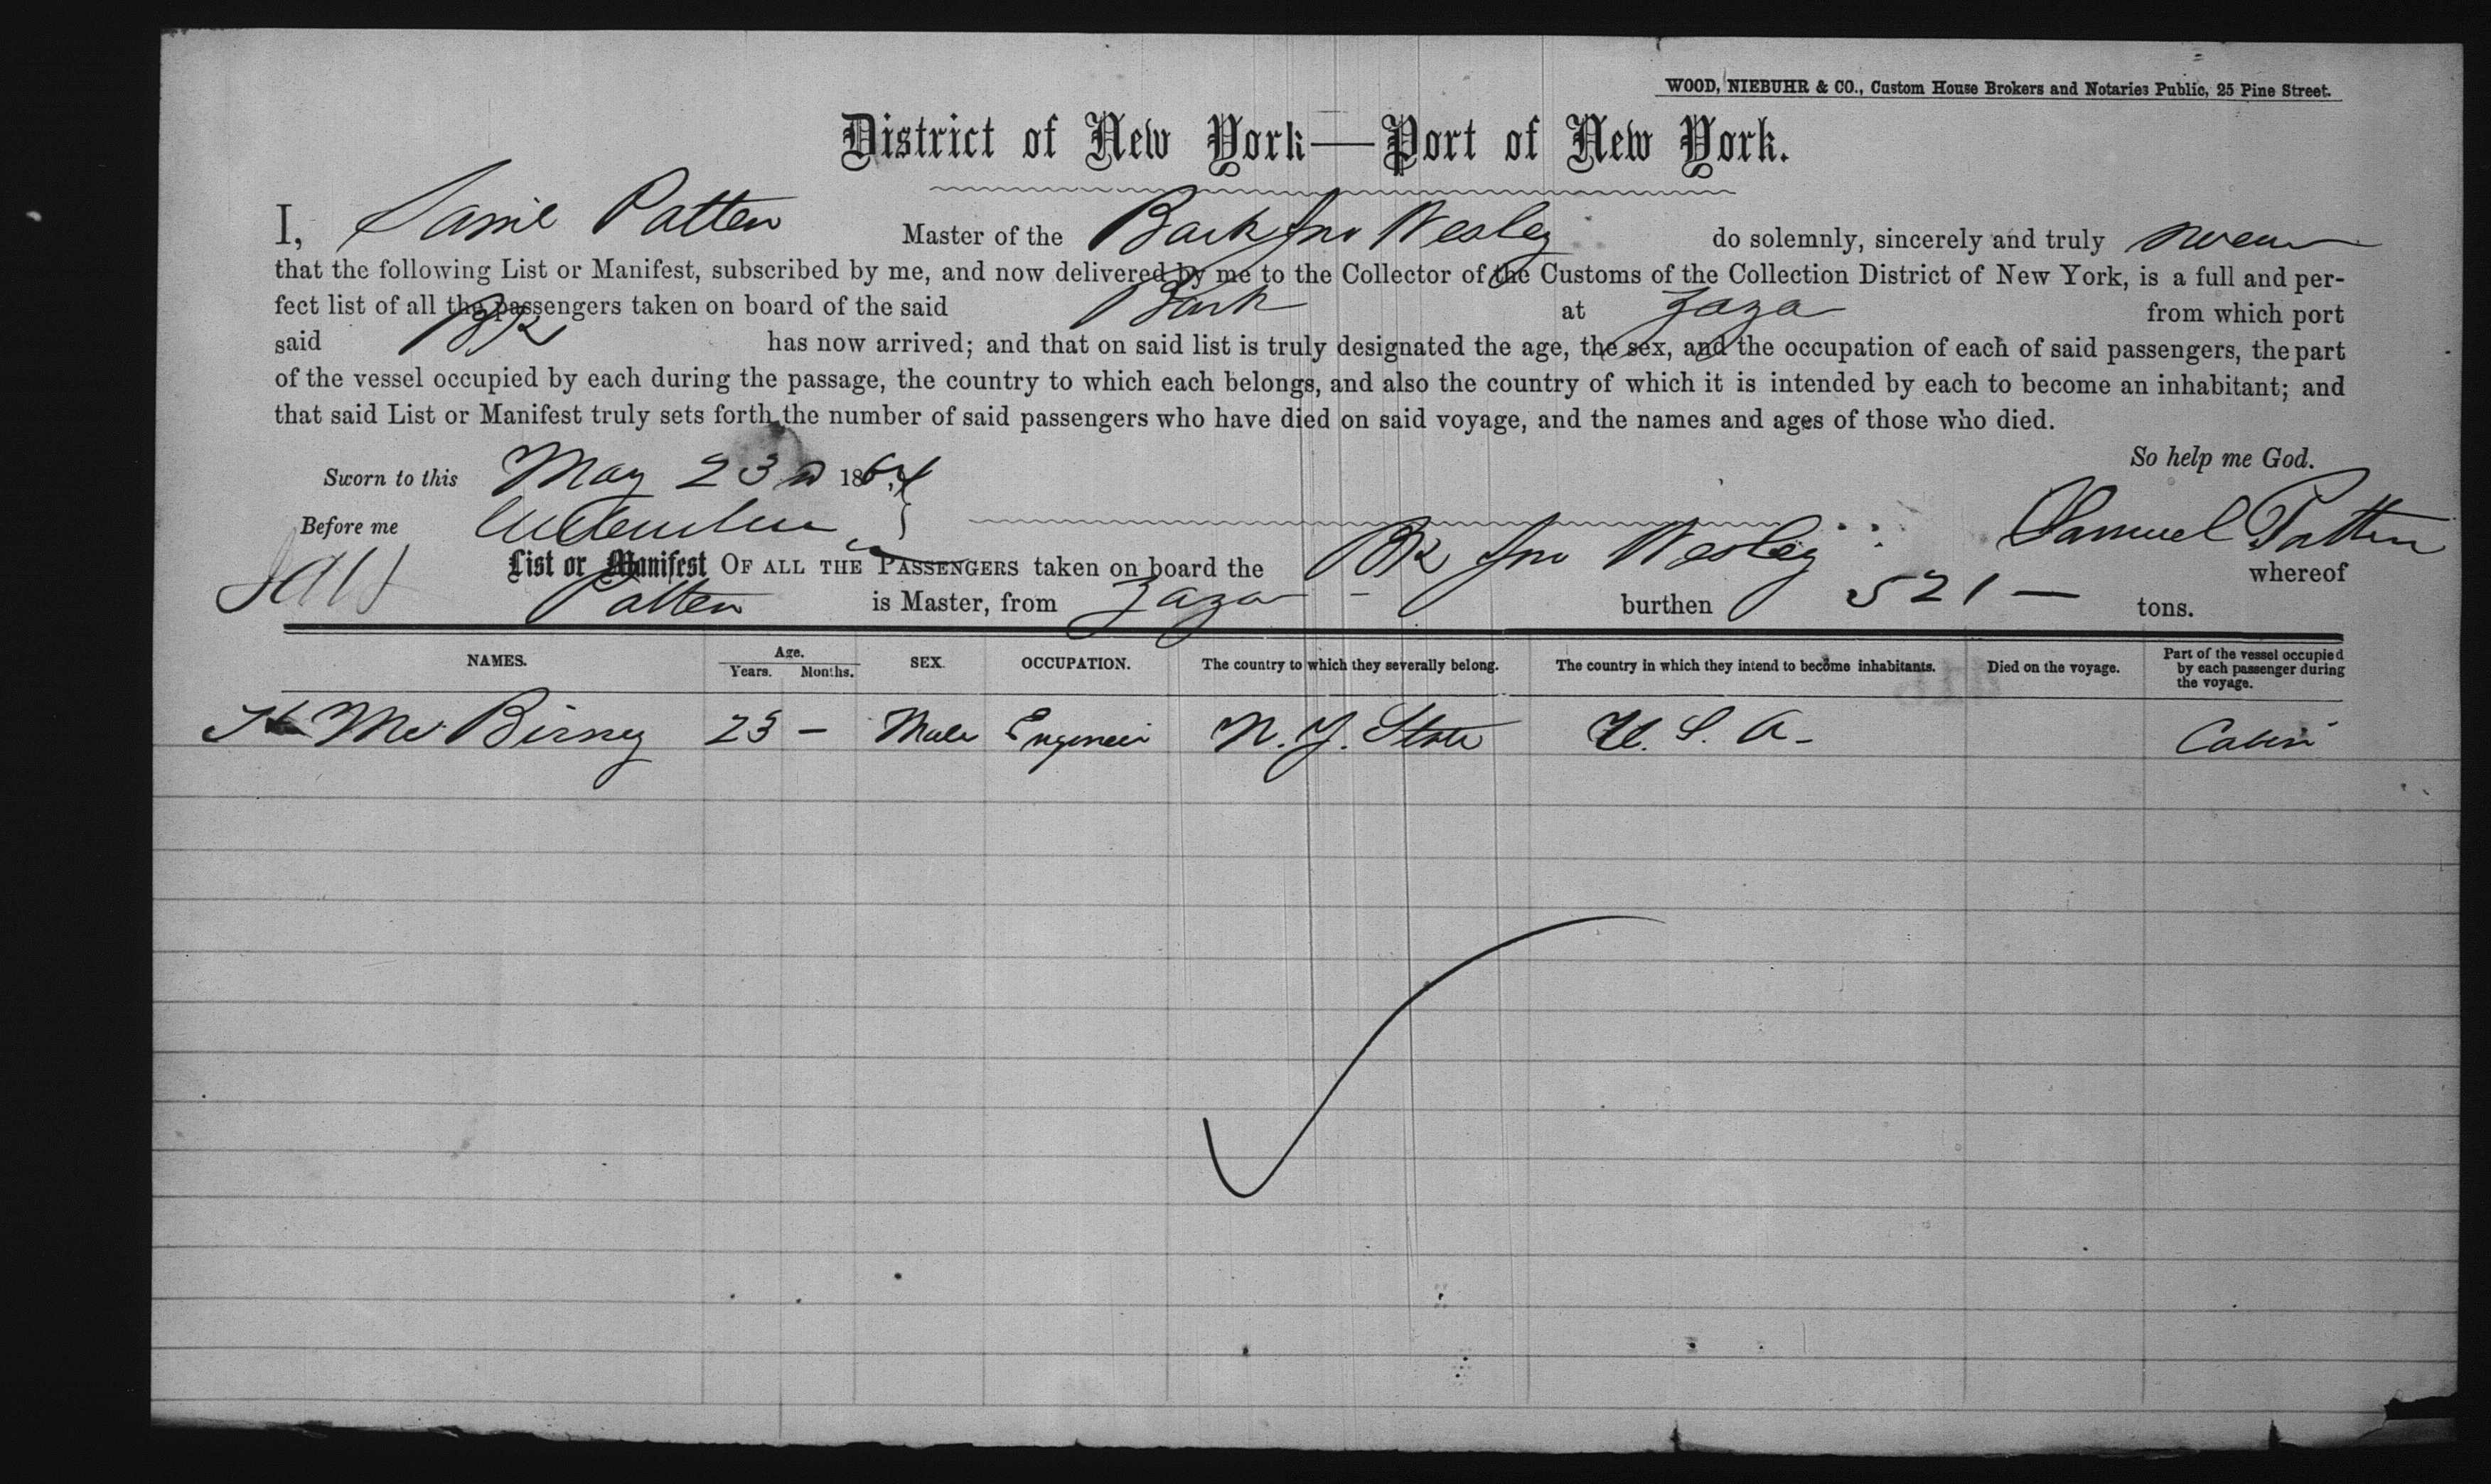 WOOD, NIEBUHR & CO., Custom House Brokers and Notaries Public, 25 Pine Street.
District of New York—Port of New York.
I, Saml Patten Master of the Bark Jno Wesley do solemnly, sincerely and truly swear
that the following List or Manifest, subscribed by me, and now delivered by me to the Collector of the Customs of the Collection District of New York, is a full and per-
fect list of all the passengers taken on board of the said Bark at Zaza from which port
said Bk has now arrived; and that on said list is truly designated the age, the sex, and the occupation of each of said passengers, the part
of the vessel occupied by each during the passage, the country to which each belongs, and also the country of which it is intended by each to become an inhabitant; and
that said List or Manifest truly sets forth the number of said passengers who have died on said voyage, and the names and ages of those who died.
So help me God.
Sworn to this May 23d 1864
Before me
Samuel Patten
List or Manifest OF ALL THE PASSENGERS taken on board the Bk Jno Wesley whereof
Patten is Master, from Zaza burthen 521 — tons.
NAMES. Age. Years. Months. SEX. OCCUPATION. The country to which they severally belong. The country in which they intend to become inhabitants. Died on the voyage. Part of the vessel occupied by each passenger during the voyage.
Mc Birney 23 — Male Engineer N. Y. State U. S. A- Cabin